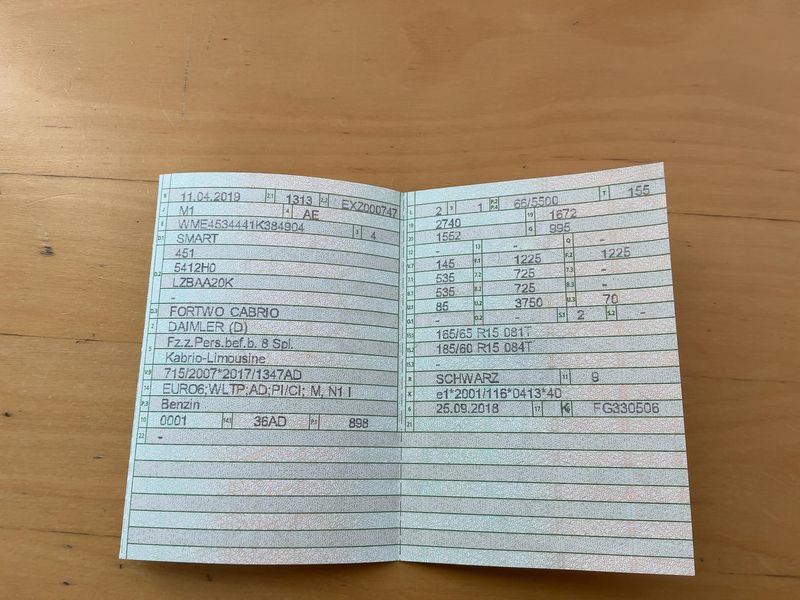 B 11.04.2019 2.1 1313 2.2 EXZ000747
J M1 4 AE
E WME4534441K384904 3 4
D.1 SMART
451
D.2 5412H0
LZBAA20K
-
D.3 FORTWO CABRIO
2 DAIMLER (D)
5 Fz.z.Pers.bef.b. 8 Spl.
Kabrio-Limousine
V.9 715/2007*2017/1347AD
14 EURO6;WLTP;AD;PI/CI; M, N1 I
P.3 Benzin
10 0001 14.1 36AD P.1 898
22 -
L 2 9 1 P.2 P.4 66/5500 T 155
18 2740 19 1672
20 1552 G 995
12 - 13 - Q -
V.7 145 F.1 1225 F.2 1225
7.1 535 7.2 725 7.3 -
8.1 535 8.2 725 8.3 -
U.1 85 U.2 3750 U.3 70
O.1 - O.2 - S.1 2 S.2 -
15.1 165/65 R15 081T
15.2 185/60 R15 084T
15.3 -
R SCHWARZ 11 9
K e1*2001/116*0413*40
6 25.09.2018 17 K 16 FG330506
21